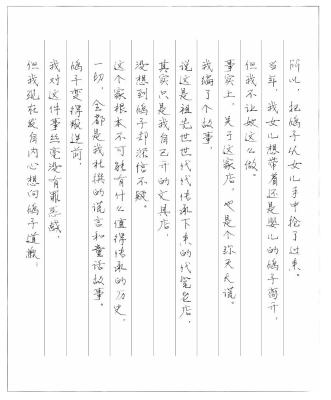 所以，把鸽子从女儿手中抢了过来。
当年，我女儿想带着还是婴儿的鸽子离开，
但我不让她这么做。
事实上，关于这家店，也是个弥天大谎。
我编了个故事，
说这是祖先世世代代传承下来的代笔老店，
其实只是我自己开的文具店。
没想到鸽子却深信不疑。
这个家根本不可能有什么值得传承的历史，
一切，全都是我杜撰的谎言和童话故事。
鸽子变得叛逆前，
我对这件事丝毫没有罪恶感。
但我现在发自内心想向鸽子道歉。